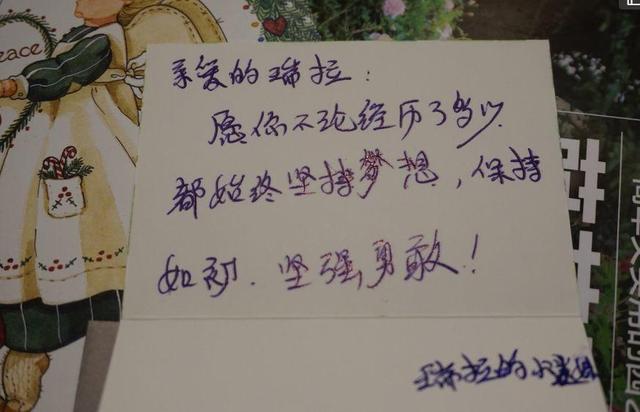 Peace
亲爱的瑞拉：
愿你不论经历了多少
都始终坚持梦想，保持
如初．坚强，勇敢！
瑞拉的